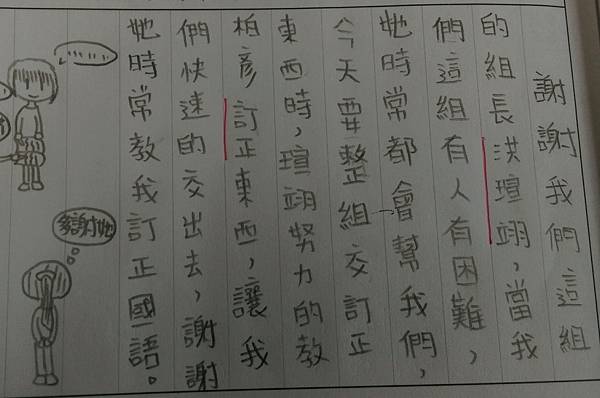 謝謝我們這組
的組長洪瑄翊，當我
們這組有人有困難，
她時常都會幫我們，
今天要整組交訂正
東西時，瑄翊努力的教
柏彥訂正東西，讓我
們快速的交出去，謝謝
她時常教我訂正國語。
多謝她